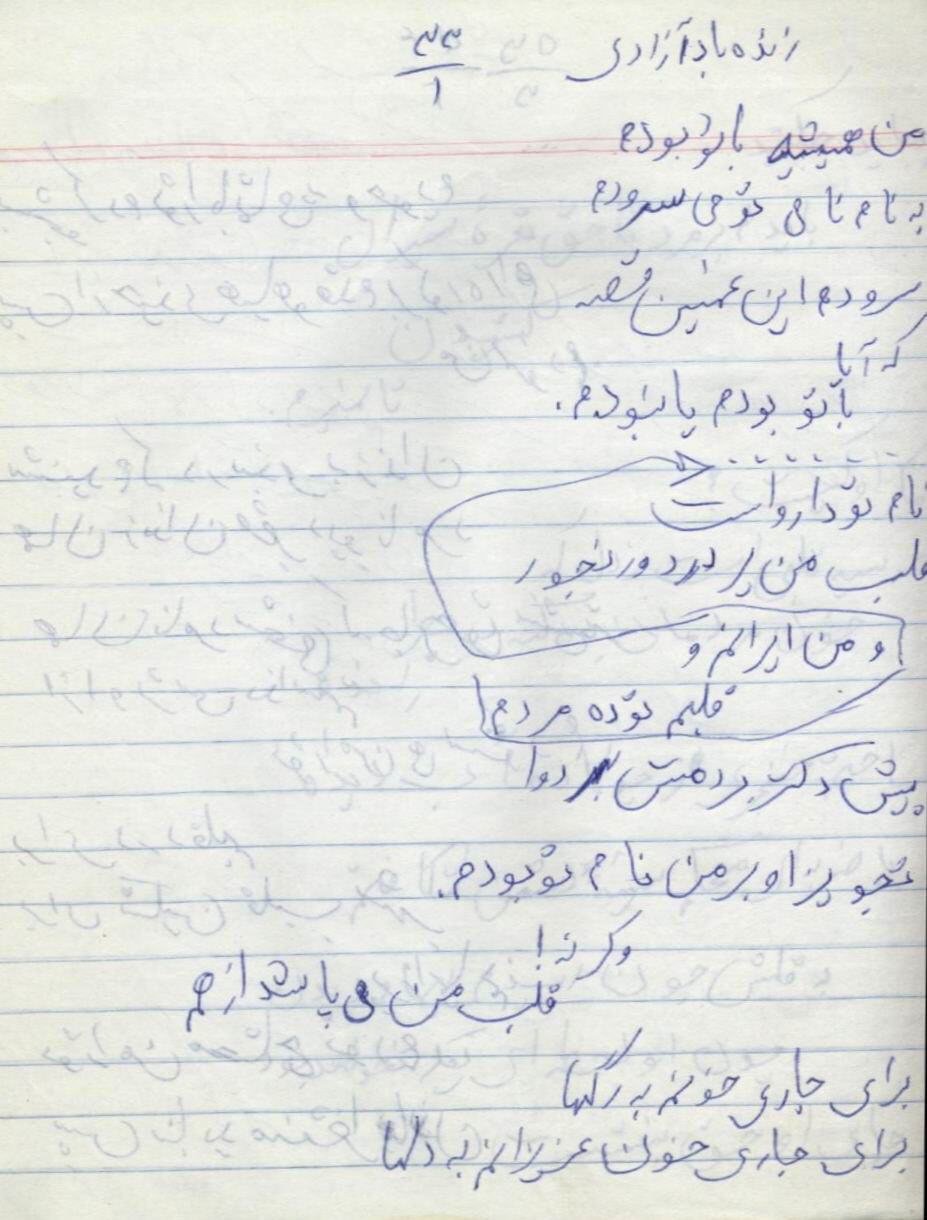 زنده باد آزادی ۳۳/۱
من همیشه با تو بودم
به نام نامی تو می سرودم
سرودم این غمین قصه
که آیا
با تو بودم یا نبودم.
نام تو دارو است
قلب من پر درد و رنجور
و من ایرانم و
قلبم توده مردم
پیش دکتر بردمش دوا
تجویز او بر من نام تو بودم.
وگرنه!
قلب من می پاشد از هم
برای جاری خونم به رگها
برای جاری خون عزیزانم به دلها